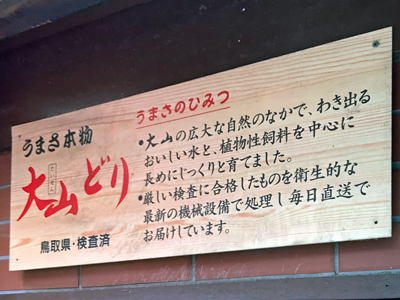 うまさ本物
だいせん
大山どり
鳥取県・検査済
うまさのひみつ
•大山の広大な自然のなかで、わき出る
おいしい水と、植物性飼料を中心に
長めにじっくりと育てました。
•厳しい検査に合格したものを衛生的な
最新の機械設備で処理し毎日直送で
お届けしています。